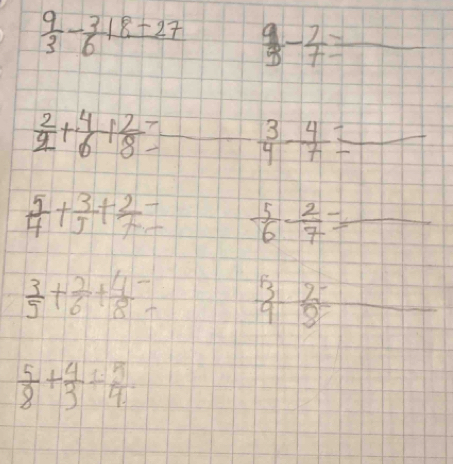 9/3 - 3/6 + 8 = 27
9/3 - 2/7 =
2/2 + 4/6 + 2/8 =
3/4 - 4/7 =
5/4 + 3/5 + 2/7 =
5/6 - 2/7 =
3/5 + 2/6 + 4/8 =
3/9 - 2/8
5/8 + 4/3 + 5/4